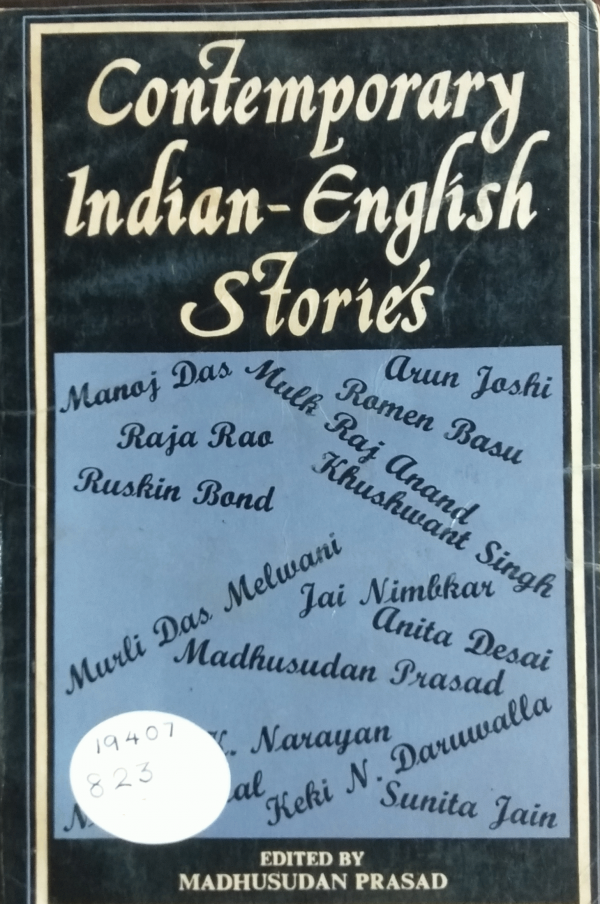 Contemporary
Indian-English
Stories
Manoj Das
Mulk Raj Anand
Arun Joshi
Romen Basu
Raja Rao
Khushwant Singh
Ruskin Bond
Murli Das Melwani
Jai Nimbkar
Anita Desai
Madhusudan Prasad
Narayan
Keki N. Daruwalla
Sunita Jain
19407
823
EDITED BY
MADHUSUDAN PRASAD